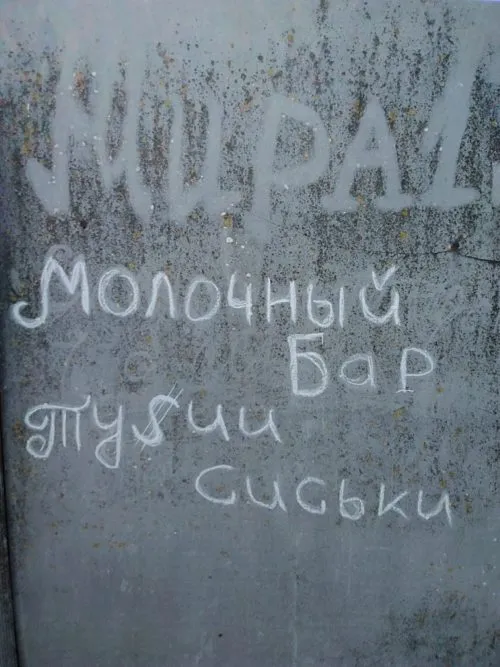 МирА 1
Молочный
Бар
Ту$ии
сиськи